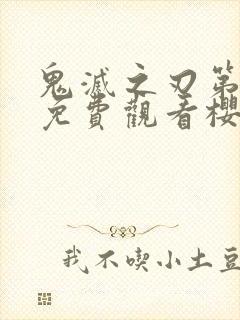 鬼滅之刃第
免費觀看櫻
我不喫小土豆